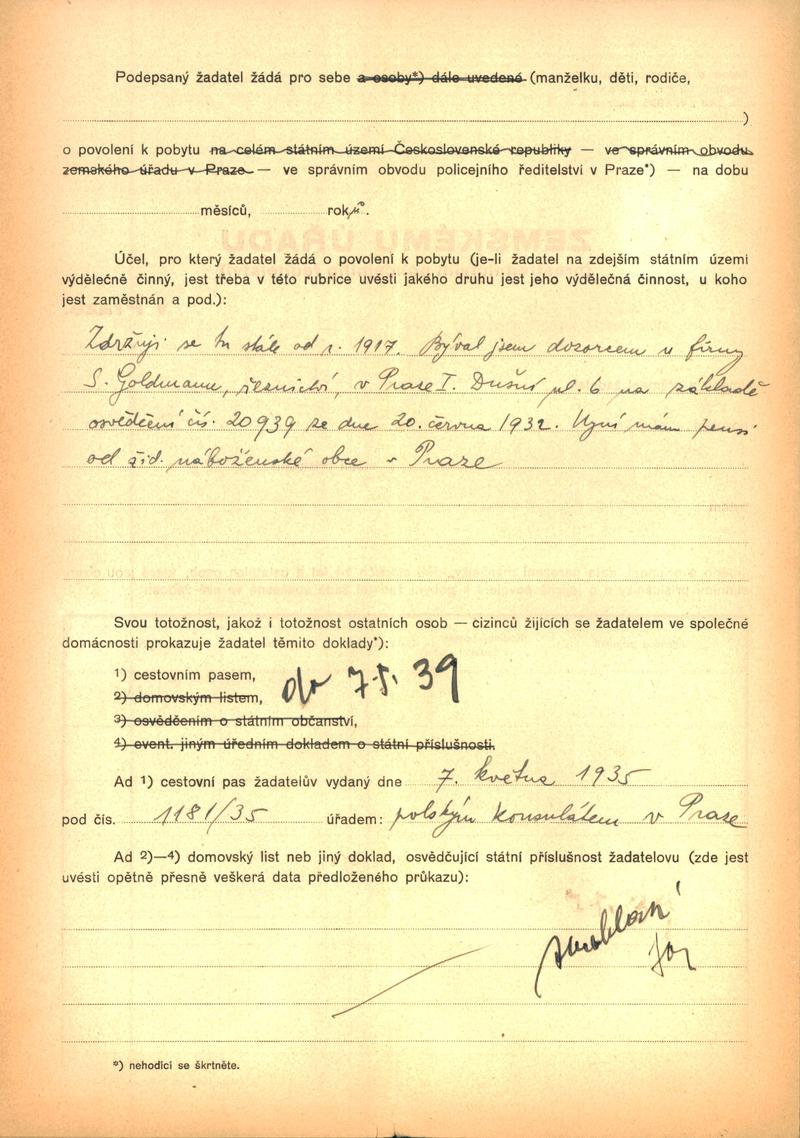 Podepsaný žadatel žádá pro sebe a osoby*) dále uvedené (manželku, děti, rodiče,
)
o povolení k pobytu na celém státním území Československé republiky — ve správním obvodu
zemského úřadu v Praze — ve správním obvodu policejního ředitelství v Praze*) — na dobu
měsíců, roků.
Účel, pro který žadatel žádá o povolení k pobytu (je-li žadatel na zdejším státním území
výdělečně činný, jest třeba v této rubrice uvésti jakého druhu jest jeho výdělečná činnost, u koho
jest zaměstnán a pod.):
Zdržuji se tu stále od r. 1917. Býval jsem dozorcem u firmy
S. Goldmann, řeznictví, v Praze I. Dušní ul. 6 na základě
osvědčení čís. 20939 ze dne 20. června 1932. Nyní mám pensi
od žid. náboženské obce v Praze
Svou totožnost, jakož i totožnost ostatních osob — cizinců žijících se žadatelem ve společné
domácnosti prokazuje žadatel těmito doklady*):
1) cestovním pasem,
2) domovským listem, do 7.5. 39
3) osvědčením o státním občanství,
4) event. jiným úředním dokladem o státní příslušnosti.
Ad 1) cestovní pas žadatelův vydaný dne 7. května 1935
pod čís. 1181/35 úřadem: polským konsulátem v Praze
Ad 2)—4) domovský list neb jiný doklad, osvědčující státní příslušnost žadatelovu (zde jest
uvésti opětně přesně veškerá data předloženého průkazu):
*) nehodící se škrtněte.